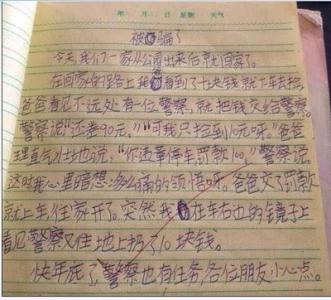 年 月 日 星期 天气
被骗!
今天,我们一家从公园出来后就回家了。
在回家的路上我看到了十块钱就下车去捡,
爸爸看见不远处有一位警察,就把钱交给警察。
警察说"还差90元。""可我只捡到10元呀。"爸爸
理直气壮地说,"你违章停车罚款100,"警察说。
这时我心里暗想:多么痛的领悟呀。爸爸交了罚款
就上车往家开了。突然我在车右边的镜子上
看见警察又往地上扔了10块钱。
快年底了,警察也有任务,各位朋友小心点。